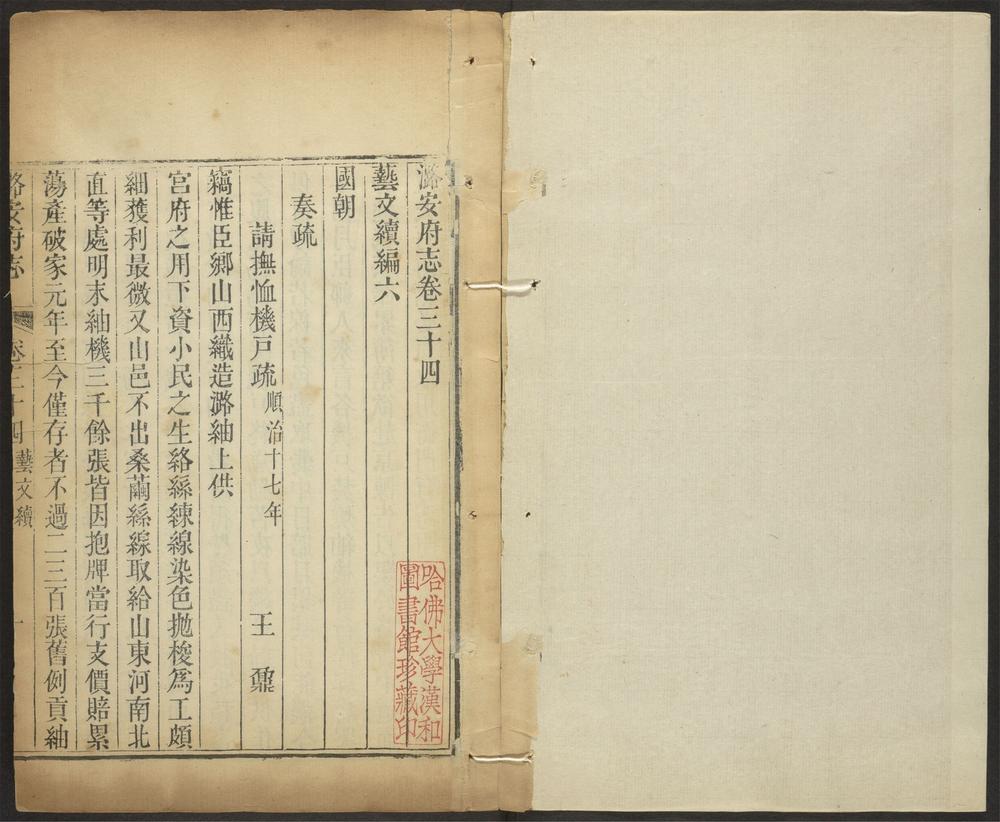 潞安府志卷三十四
藝文續編六
國朝
奏疏
請撫恤機戶疏 順治十七年 王鼐
竊惟臣鄉山西織造潞紬上供
宮府之用下資小民之生絡絲練線染色抛梭爲工頗
細獲利最微又山邑不出桑繭絲線取給山東河南北
直等處明末紬機三千餘張皆因抱牌當行支價賠累
蕩產破家元年至今僅存者不過二三百張舊例貢紬
潞安府志 卷三十四 藝文續 一
哈佛大學漢和
圖書館珍藏印